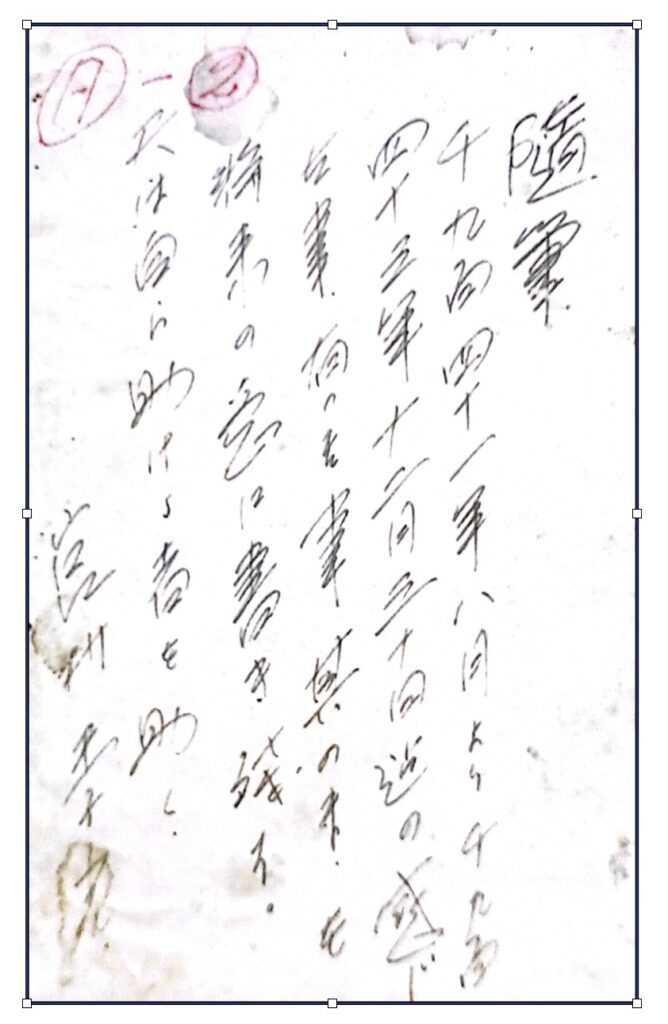 隨筆
千九百四十一年八月より千九百
四十五年十二月三十日迄の感じ
た事 有った事 其の木を
将来の為に書き残す。
天は自ら助ける者を助く。
宮村
A-2